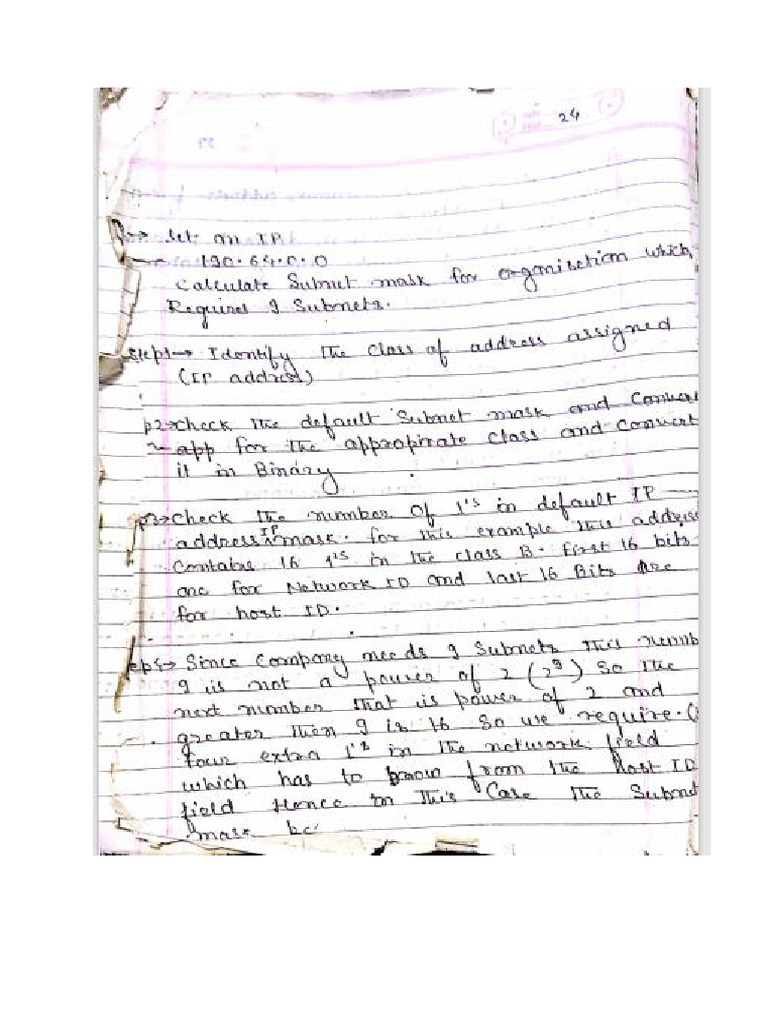 24
Q→ Let an IP.
190.64.0.0
Calculate Subnut mask for organisetion which
Requires 9 Subnets.
step1→ Identify The class of address assigned
(IP address)
p2→check The default Subnet mask and Convert
app for The appropirate class and Convert
it in Binary
p3→check The number of 1's in default IP
address IP mask. for this example this address
Contains 16 1's in the class B. first 16 bits
are for Network ID and last 16 Bits Are
for host ID.
ep5→ Since Company needs 9 Subnets This numb
9 is not a power of 2 (2⁹) So the
next number that is power of 2 and
greater then 9 is 16 So we require.
four extra 1's in the network field
which has to from the Host ID
field Hence in This Case The Subnet
mask be